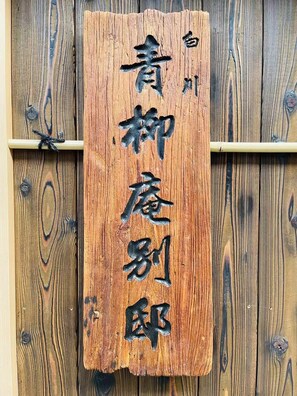 白川
青柳庵別邸